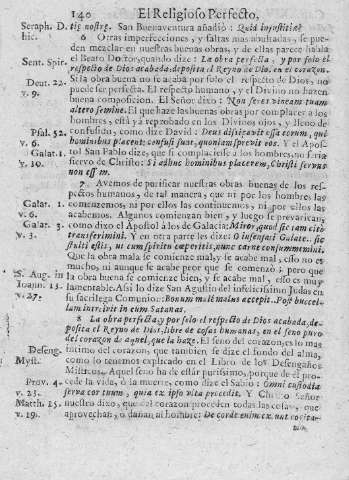 140 El Religioso Perfecto,
Seraph. D. tię nostrę. San Buenaventura añadiò: Quid injustitiæ
hic. 6 Otras imperfecciones, y faltas mas ahondadas, se pue
den mezclar en nuestras buenas obras, y de ellas parece habla
el Beato Doctor, quando dize: La obra perfecta, y por solo el
Sent. Spir. respecto de Dios acabada, deposita el Reyno de Dio, en el corazon.
Si la obra buena no se acaba por solo el respecto de Dios, no
Deut. 22. puede ser perfecta. El respecto humano, y el Divino no hazen
v. 9. buena composicion. El Señor dixo: Non seres vineam tuam
altero semine. El que haze las buenas obras por complacer à los
hombres, està yà reprobado en los Divinos ojos, y lleno de
Psal. 52. confusion, como dize David: Deus dissipavit ossa eorum, qui
v. 6. hominibus placent; confusi sunt, quoniam sprevit eos. Y el Apos-
Galat. 1. tol San Pablo dize, que si complaciesse à los hombres, no seria
v. 10. siervo de Christo: Si adhuc hominibus placerem, Christi servus
non essem.
7 Avemos de purificar nuestras obras buenas de los res-
pectos humanos, de tal manera, que ni por los hombres las
Galat. 1. comencemos, ni por ellos las continuemos, ni por ellos las
v. 6. acabemos. Algunos comienzan bien, y luego se prevarican,
Galat. 3. como dixo el Apostol à los de Galacia: Miror, quod sic tam citò
v. 3. transferimini. Y en otra parte les dize: O insensati Galatæ. Sic
stulti estis, ut cum spiritu cœperitis, nunc carne consummemini.
Que la obra mala se comienze mal, y se acabe mal, esso no es
mucho, ni aunque se acabe peor que se comenzò; pero que
S. Aug. in la obra buena se comienze bien, y se acabe mal, esso es muy
Ioann. 13. lamentable. Assi lo dize San Agustin del infelicissimo Judas en
v. 27. su sacrilega Comunion: Bonum malè malus accepit. Post buccel-
lam intrivit in eum Satanas.
8 La obra perfecta, y por solo el respecto de Dios acabada, de-
posita el Reyno de Dios, libre de cosas humanas, en el seno puro
del corazon de aquel, que la haze. El seno del corazon, es lo mas
Deseng. intimo del corazon, que tambien, se dize el fondo del alma,
Myst. como lo tenemos explicado en el Libro de los Desengaños
Misticos. Aquel seno ha de estàr purissimo, porque de el pro-
Prov. 4. cede la vida, ò la muerte, como dize el Sabio: Omni custodia
v. 23. serva cor tuum, quia ex ipso vita procedit. Y Christo Señor
Matth. 15. nuestro dixo, que del corazon proceden todas las cosas, que
v. 19. aprovechan, ò dañan al hombre: De corde enim ex unt cogita-